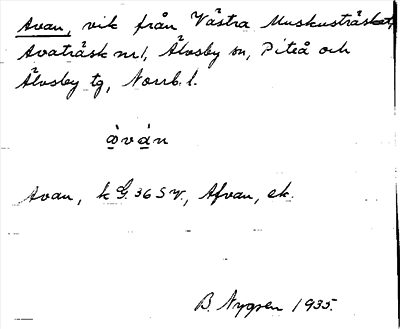 Avan, vik från Västra Muskusträsket,
Avaträsk nr 1, Älvsby sn, Piteå och
Älvsby tg, Norrb. l.
àván
Avan, k G. 36 SV., Afvan, ek.
B. Nygren 1935.